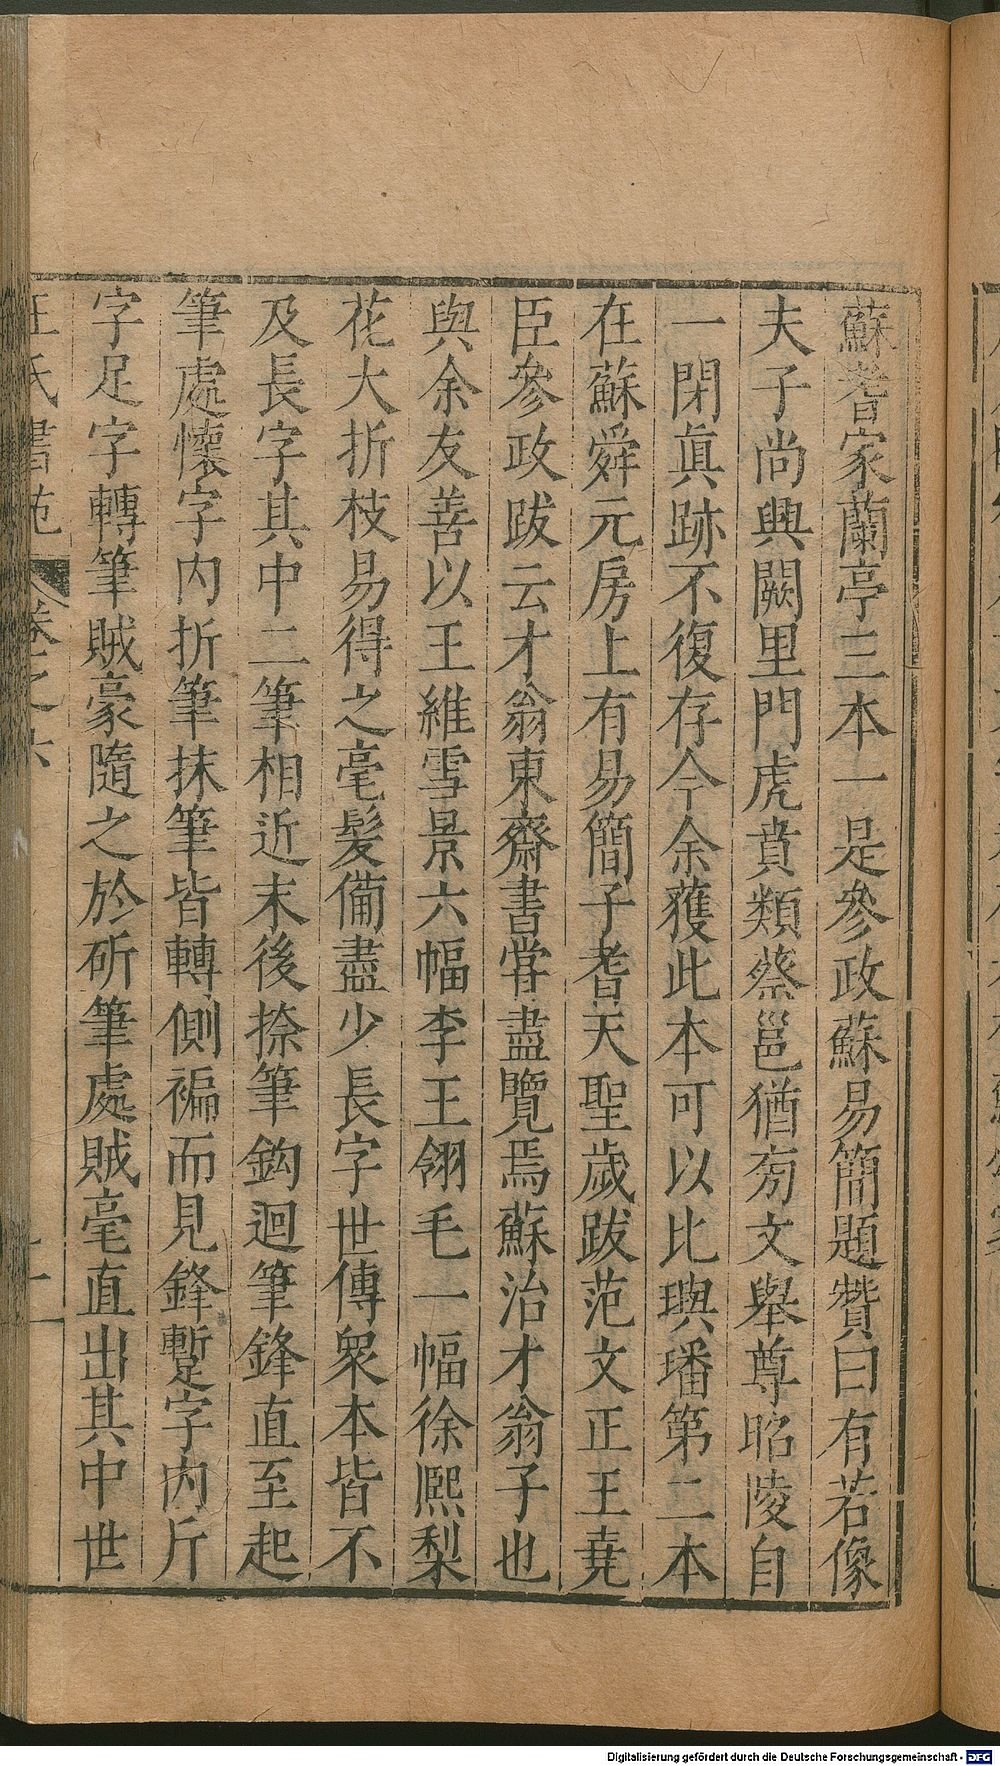 蘇耆家蘭亭三本一是參政蘇易簡題贊曰有若像
夫子尚興闕里門虎賁類蔡邕猶旁文舉尊昭陵自
一閉眞跡不復存今余獲此本可以比璵璠第二本
在蘇舜元房上有易簡子耆天聖歲跋范文正王堯
臣參政跋云才翁東齋書嘗盡覽焉蘇治才翁子也
與余友善以王維雪景六幅李王翎毛一幅徐熙梨
花大折枝易得之毫髮備盡少長字世傳衆本皆不
及長字其中二筆相近末後捺筆鈎迴筆鋒直至起
筆處懷字内折筆抹筆皆轉側褊而見鋒蹔字内斤
字足字轉筆賊豪隨之於斫筆處賊毫直出其中世
汪氏書苑 卷之六 十一
Digitalisierung gefördert durch die Deutsche Forschungsgemeinschaft - DFG